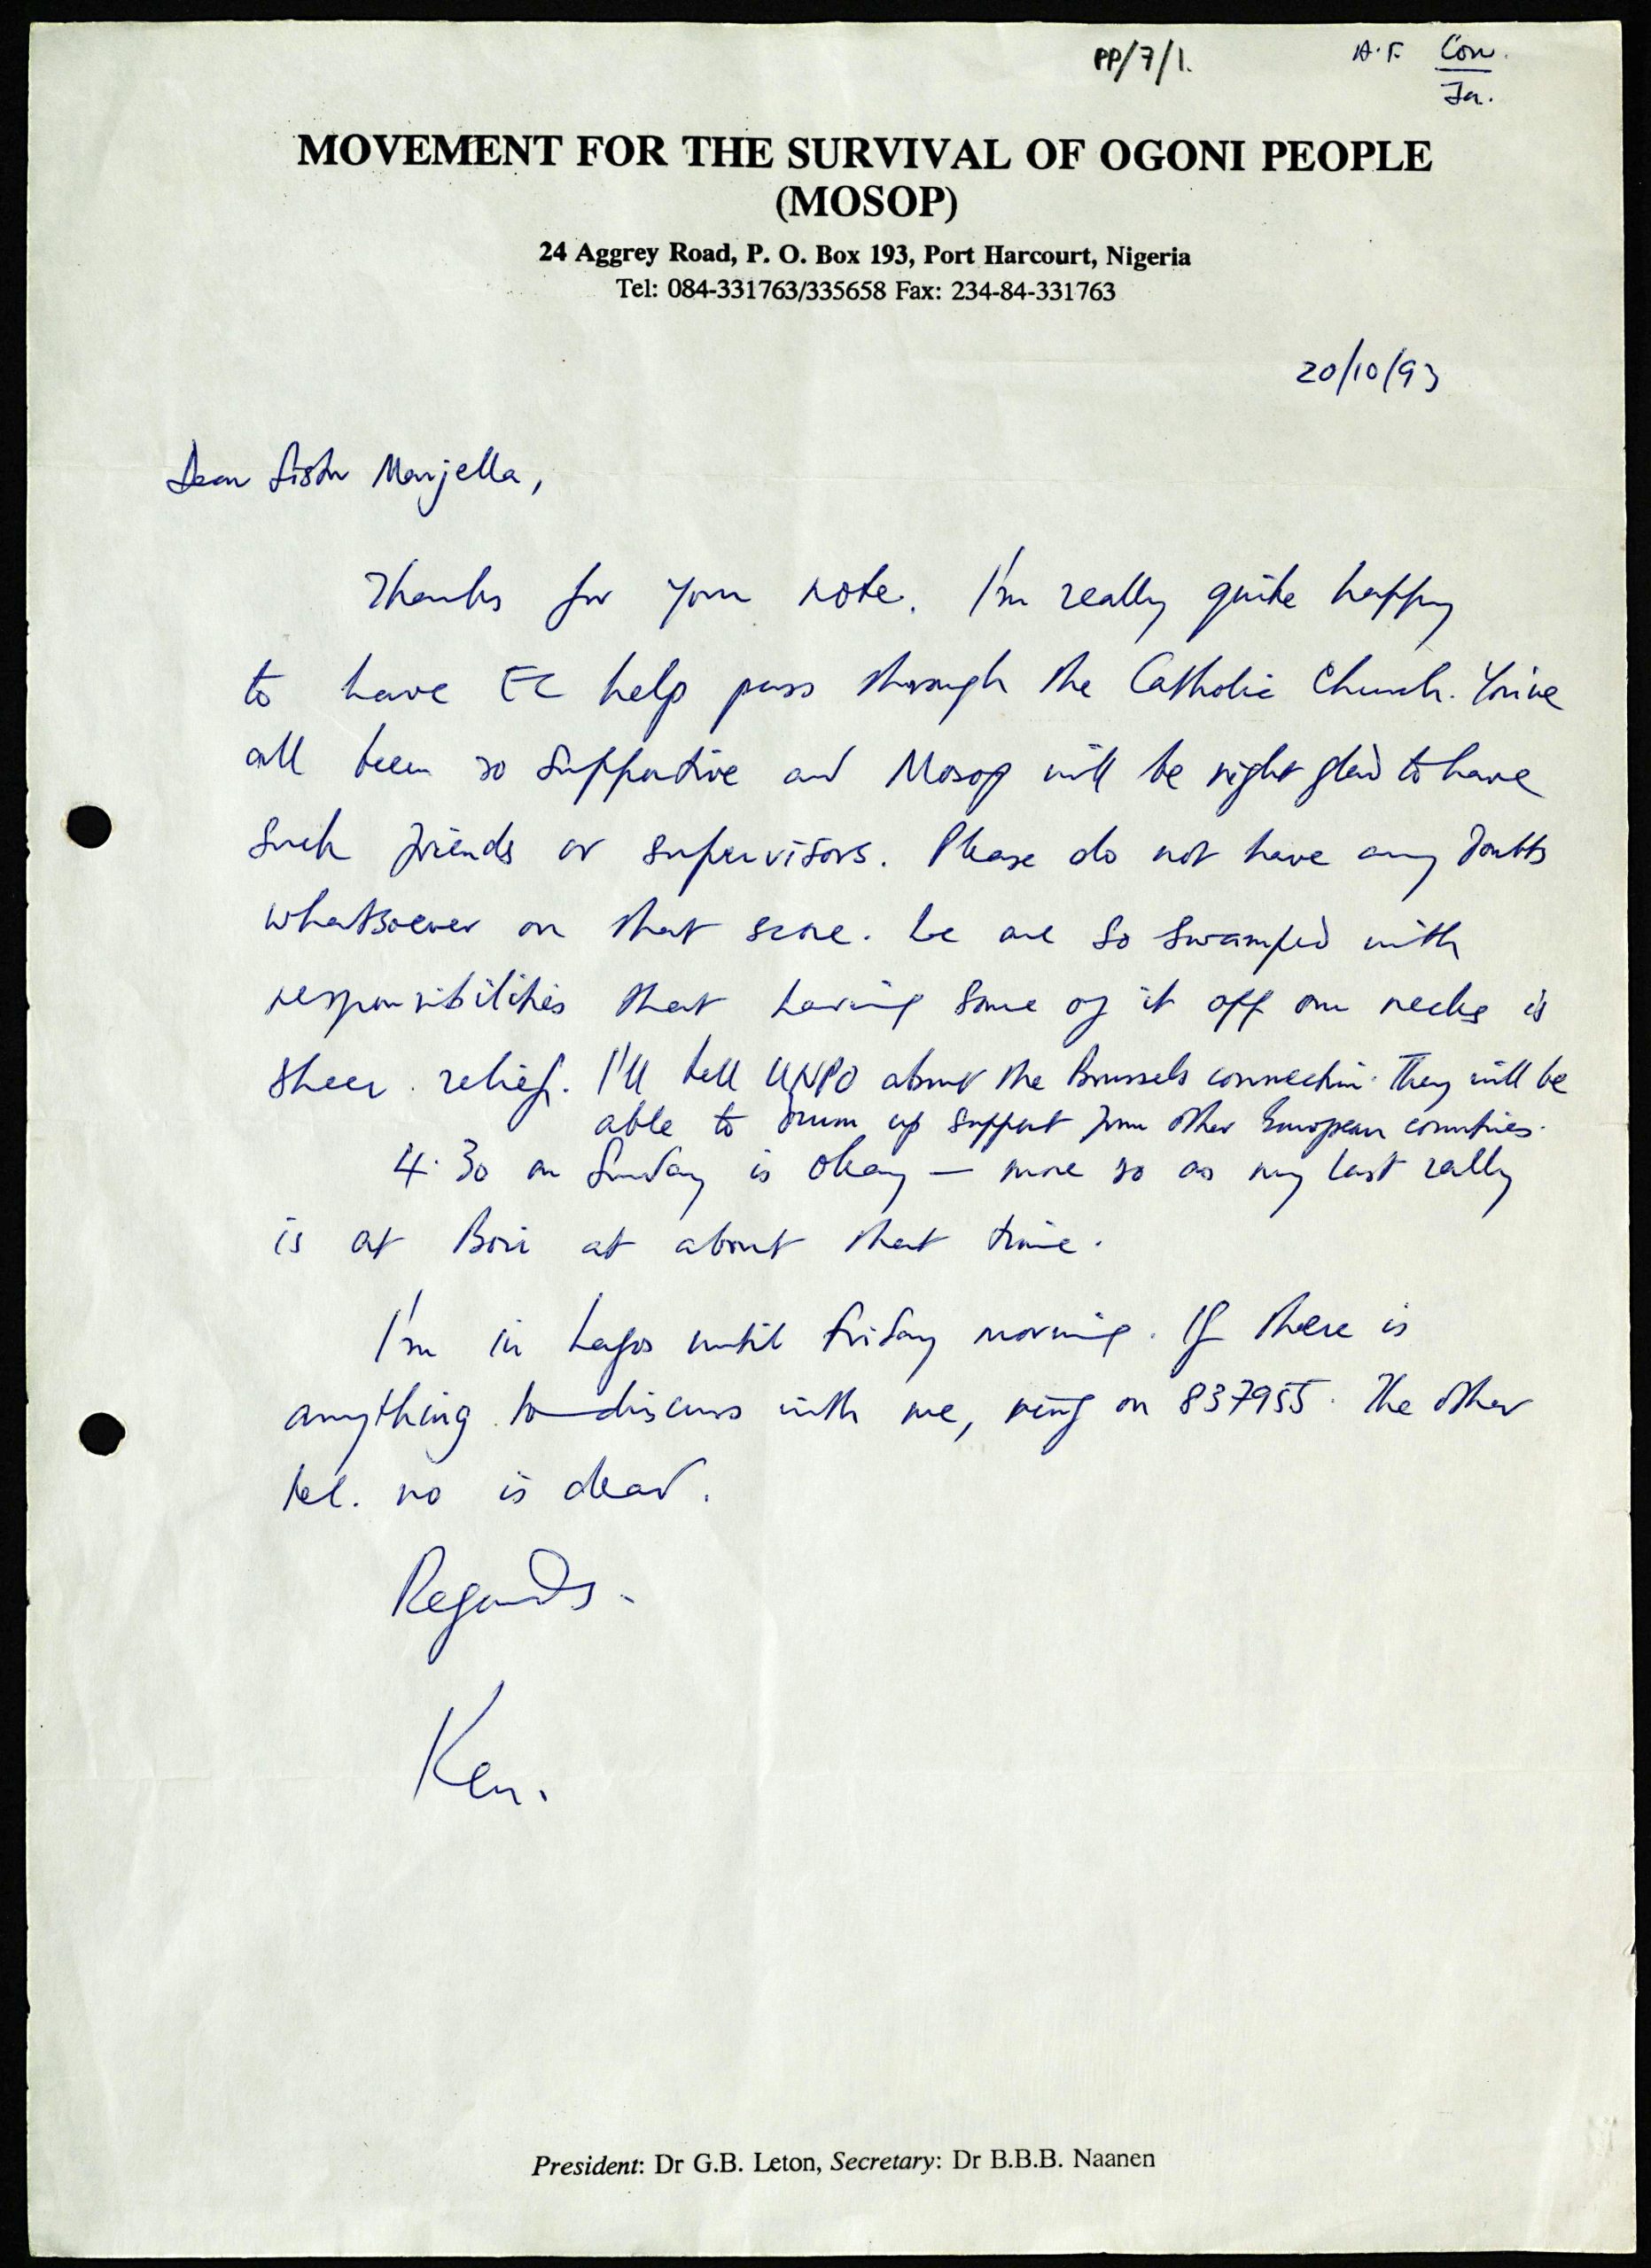 PP/7/1. A.F. Con.
Ja.
MOVEMENT FOR THE SURVIVAL OF OGONI PEOPLE
(MOSOP)
24 Aggrey Road, P. O. Box 193, Port Harcourt, Nigeria
Tel: 084-331763/335658 Fax: 234-84-331763
20/10/93
Dear Sister Marjella,
Thanks for your note. I'm really quite happy
to have EC help pass through the Catholic Church. You've
all been so supportive and Mosop will be right glad to have
such friends as supervisors. Please do not have any doubts
whatsoever on that score. We are so swamped with
responsibilities that having some of it off our necks is
sheer relief. I'll tell UNPO about the Brussels connection. They will be
able to drum up support from other European countries.
4.30 on Sunday is okay — more so as my last rally
is at Bori at about that time.
I'm in Lagos until Friday morning. If there is
anything to discuss with me, ring on 837955. The other
tel. no is dead.
Regards.
Ken.
President: Dr G.B. Leton, Secretary: Dr B.B.B. Naanen